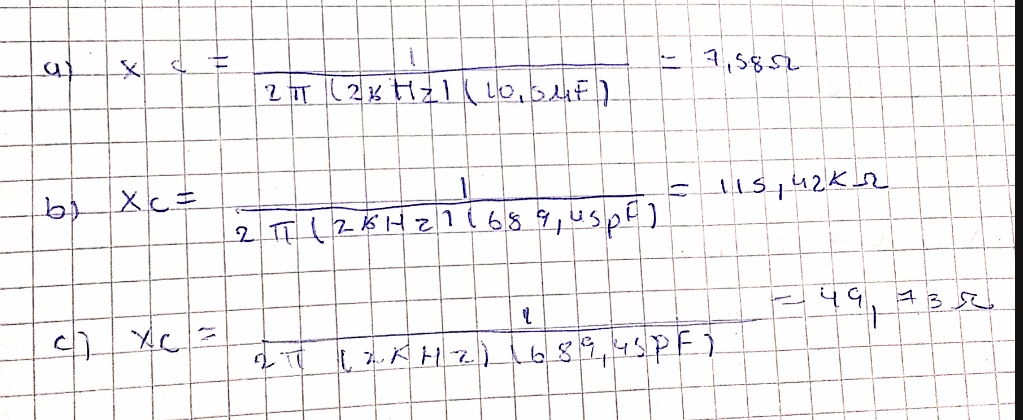 a) Xc = 1 / 2π (2KHz) (10,5µF) = 7,58Ω
b) Xc = 1 / 2π (2KHz) (689,45pF) = 115,42KΩ
c) Xc = 1 / 2π (2KHz) (689,45PF) = 49,73Ω